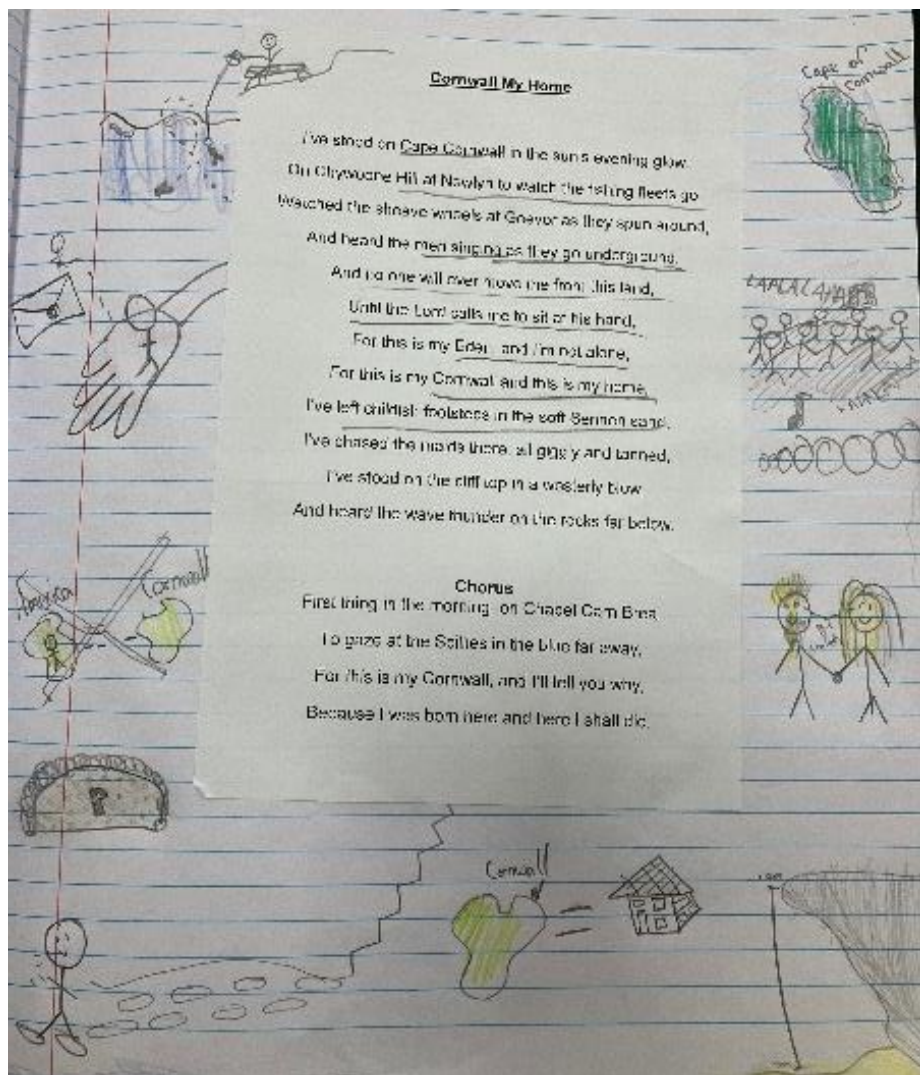 Cornwall My Home
I've stood on Cape Cornwall in the sun's evening glow
On Chywoone Hill at Newlyn to watch the fishing fleets go
Watched the sheave wheels at Geevor as they spun around,
And heard the men singing as they go underground.
And no one will ever move me from this land,
Until the Lord calls me to sit at his hand,
For this is my Eden, and I'm not alone,
For this is my Cornwall and this is my home.
I've left childish footsteps in the soft Sennen sand,
I've chased the maids there, all giggly and tanned,
I've stood on the cliff top in a westerly blow
And heard the wave thunder on the rocks far below.
Chorus
First thing in the morning, on Chapel Carn Brea
To gaze at the Scillies in the blue far away,
For this is my Cornwall, and I'll tell you why,
Because I was born here and here I shall die.
Cape of
Cornwall
America
Cornwall
P
Cornwall